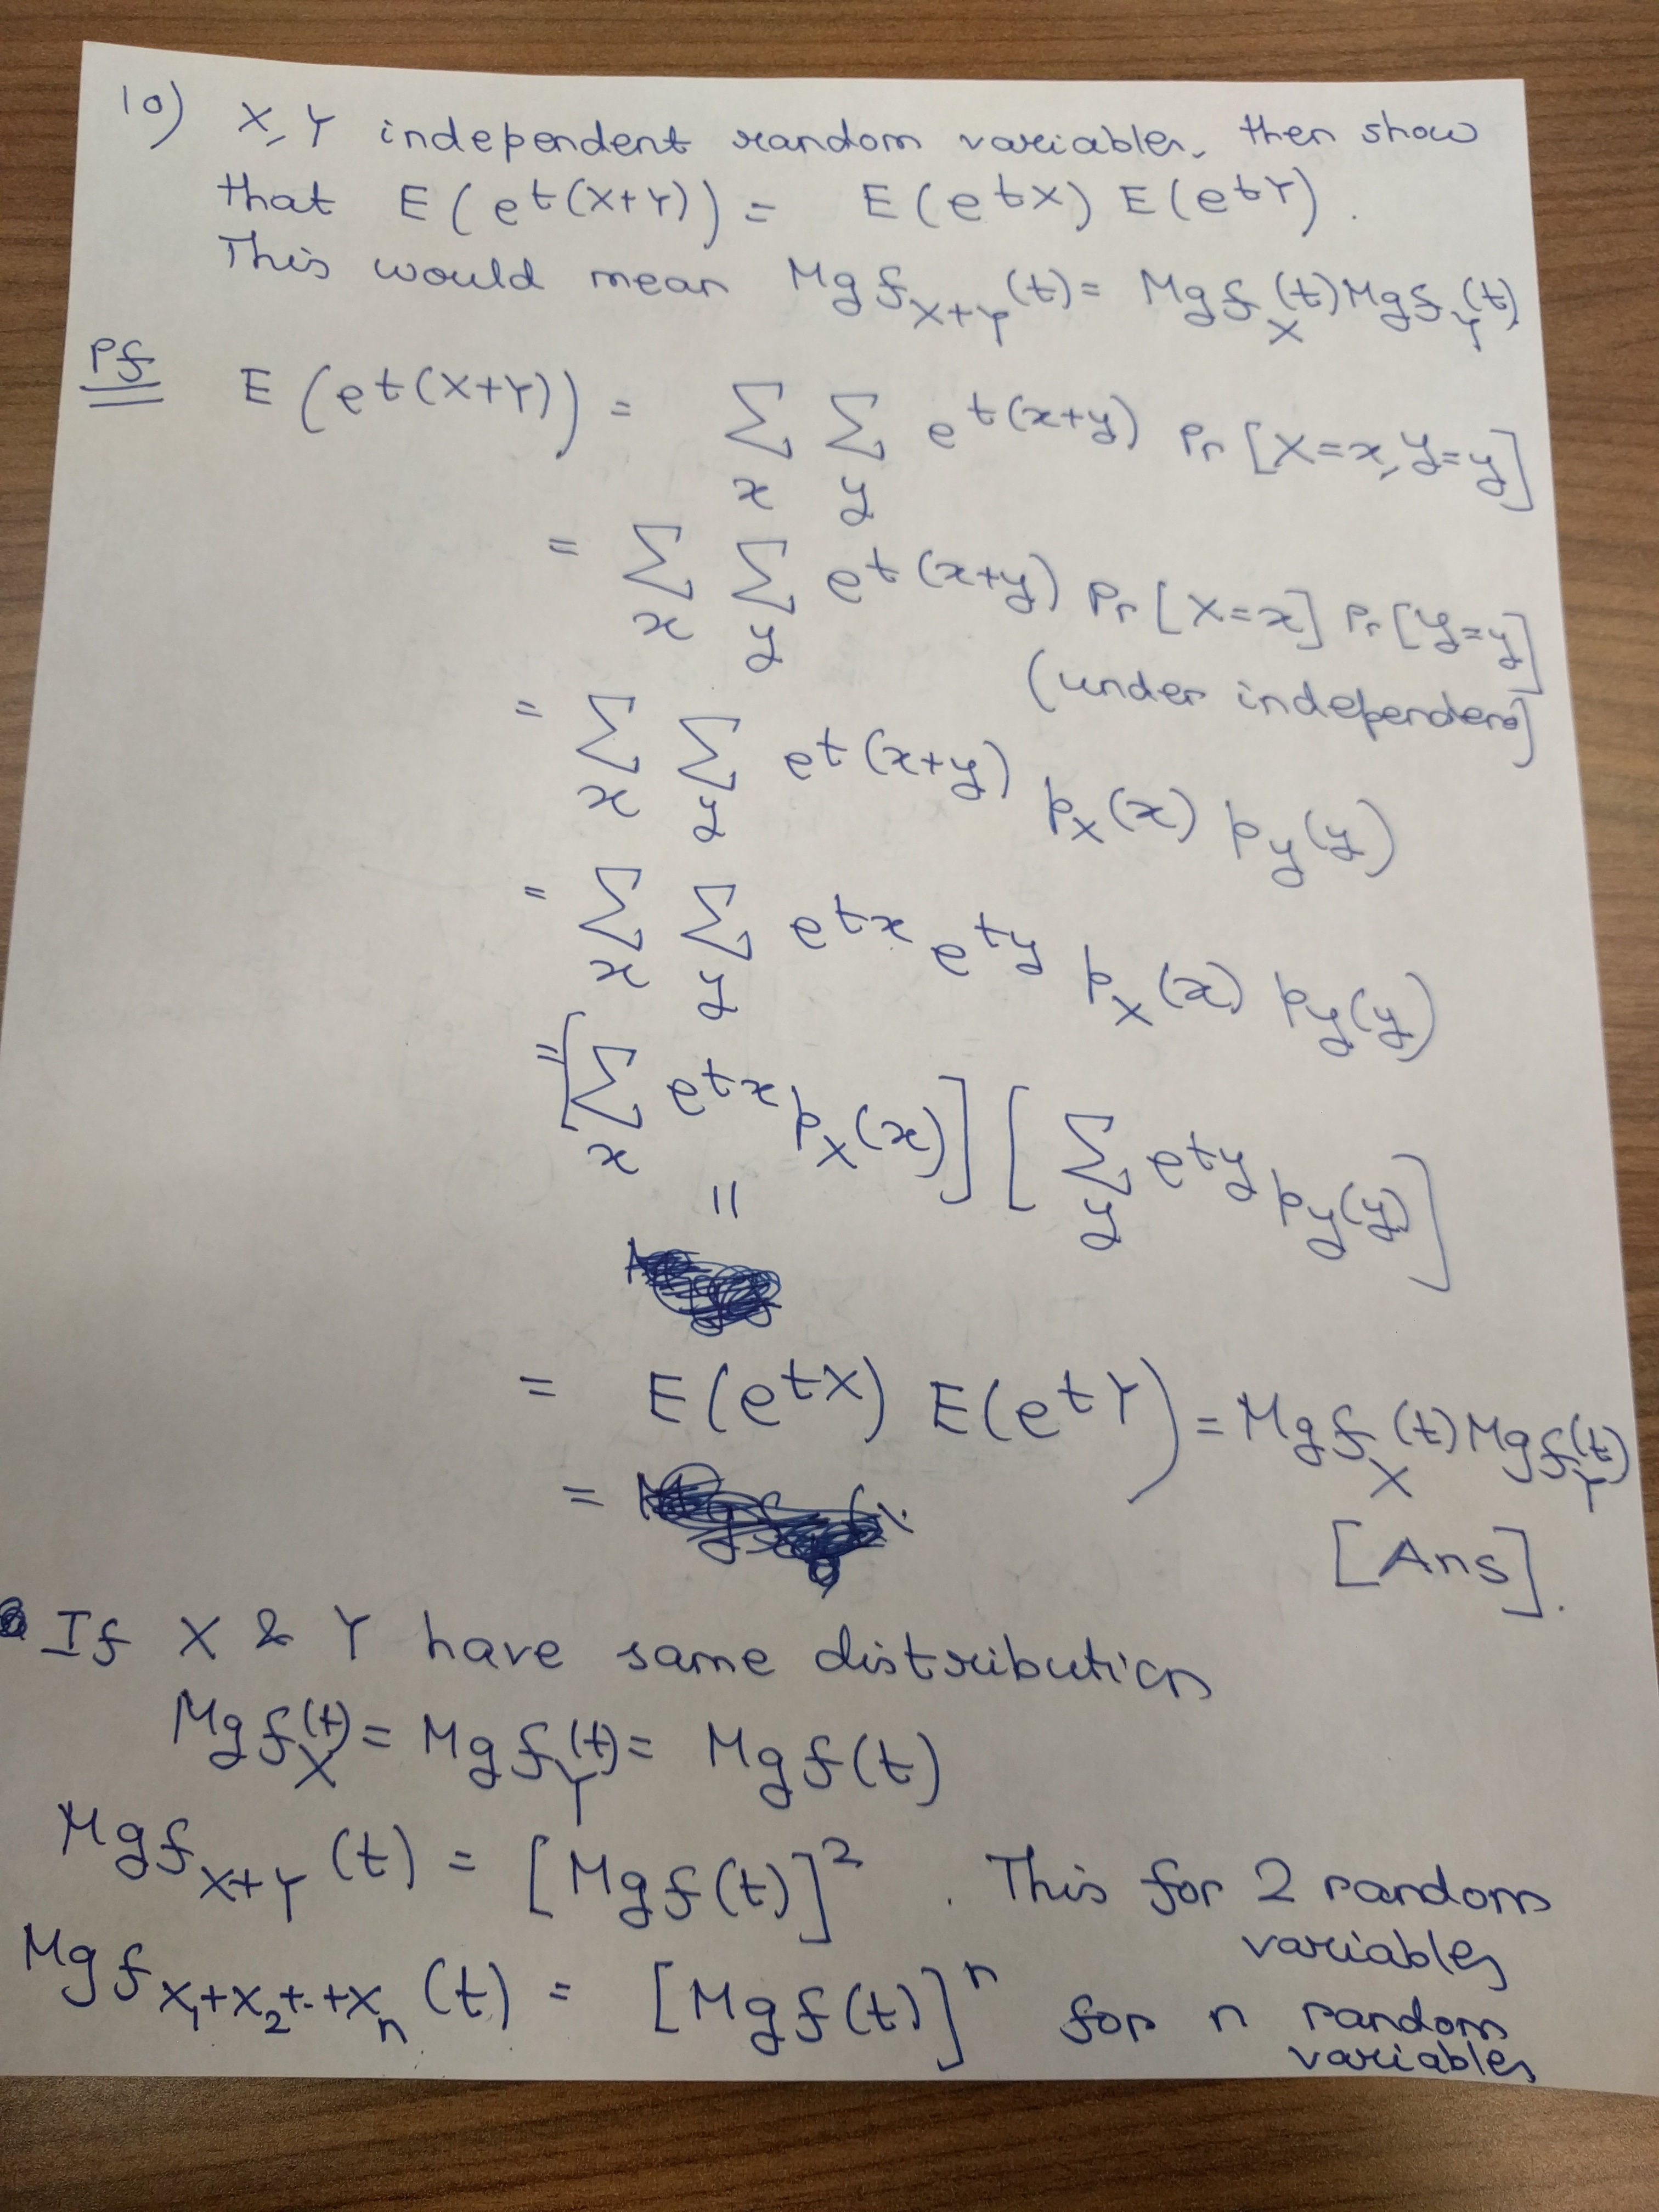 10) X, Y independent random variables, then show
that E(e^t(X+Y)) = E(e^tX) E(e^tY).
This would mean Mgf_X+Y(t) = Mgf_X(t) Mgf_Y(t)
Pf E(e^t(X+Y)) = Σ_x Σ_y e^t(x+y) Pr[X=x, Y=y]
= Σ_x Σ_y e^t(x+y) Pr[X=x] Pr[Y=y]
(under independence)
= Σ_x Σ_y e^t(x+y) p_X(x) p_y(y)
= Σ_x Σ_y e^tx e^ty p_X(x) p_y(y)
= [Σ_x e^tx p_X(x)] [Σ_y e^ty p_y(y)]
=
= E(e^tX) E(e^tY) = Mgf_X(t) Mgf_Y(t)
=
[Ans].
If X & Y have same distribution
Mgf_X(t) = Mgf_Y(t) = Mgf(t)
Mgf_X+Y(t) = [Mgf(t)]^2. This for 2 random
variables
Mgf_X₁+X₂+..+X_n(t) = [Mgf(t)]^n for n random
variables